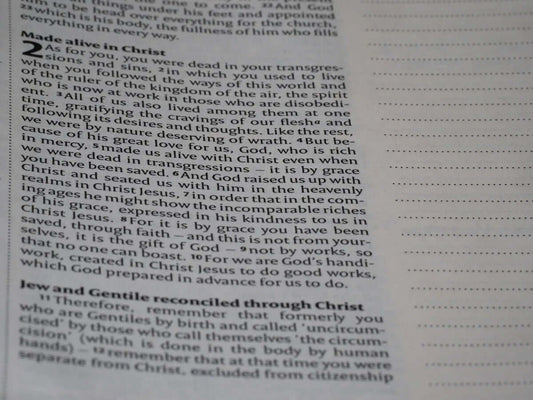 the one to come. 22 And God
all things under his feet and appointed
him to be head over everything for the church,
23 which is his body, the fullness of him who fills
everything in every way.
Made alive in Christ
2 As for you, you were dead in your transgres-
sions and sins, 2 in which you used to live
when you followed the ways of this world and
of the ruler of the kingdom of the air, the spirit
who is now at work in those who are disobedi-
ent. 3 All of us also lived among them at one
time, gratifying the cravings of our flesh a and
following its desires and thoughts. Like the rest,
we were by nature deserving of wrath. 4 But be-
cause of his great love for us, God, who is rich
in mercy, 5 made us alive with Christ even when
we were dead in transgressions – it is by grace
you have been saved. 6 And God raised us up with
Christ and seated us with him in the heavenly
realms in Christ Jesus, 7 in order that in the com-
ing ages he might show the incomparable riches
of his grace, expressed in his kindness to us in
Christ Jesus. 8 For it is by grace you have been
saved, through faith – and this is not from your-
selves, it is the gift of God – 9 not by works, so
that no one can boast. 10 For we are God's handi-
work, created in Christ Jesus to do good works,
which God prepared in advance for us to do.
Jew and Gentile reconciled through Christ
11 Therefore, remember that formerly you
who are Gentiles by birth and called 'uncircum-
cised' by those who call themselves 'the circum-
cision' (which is done in the body by human
hands) – 12 remember that at that time you were
separate from Christ, excluded from citizenship